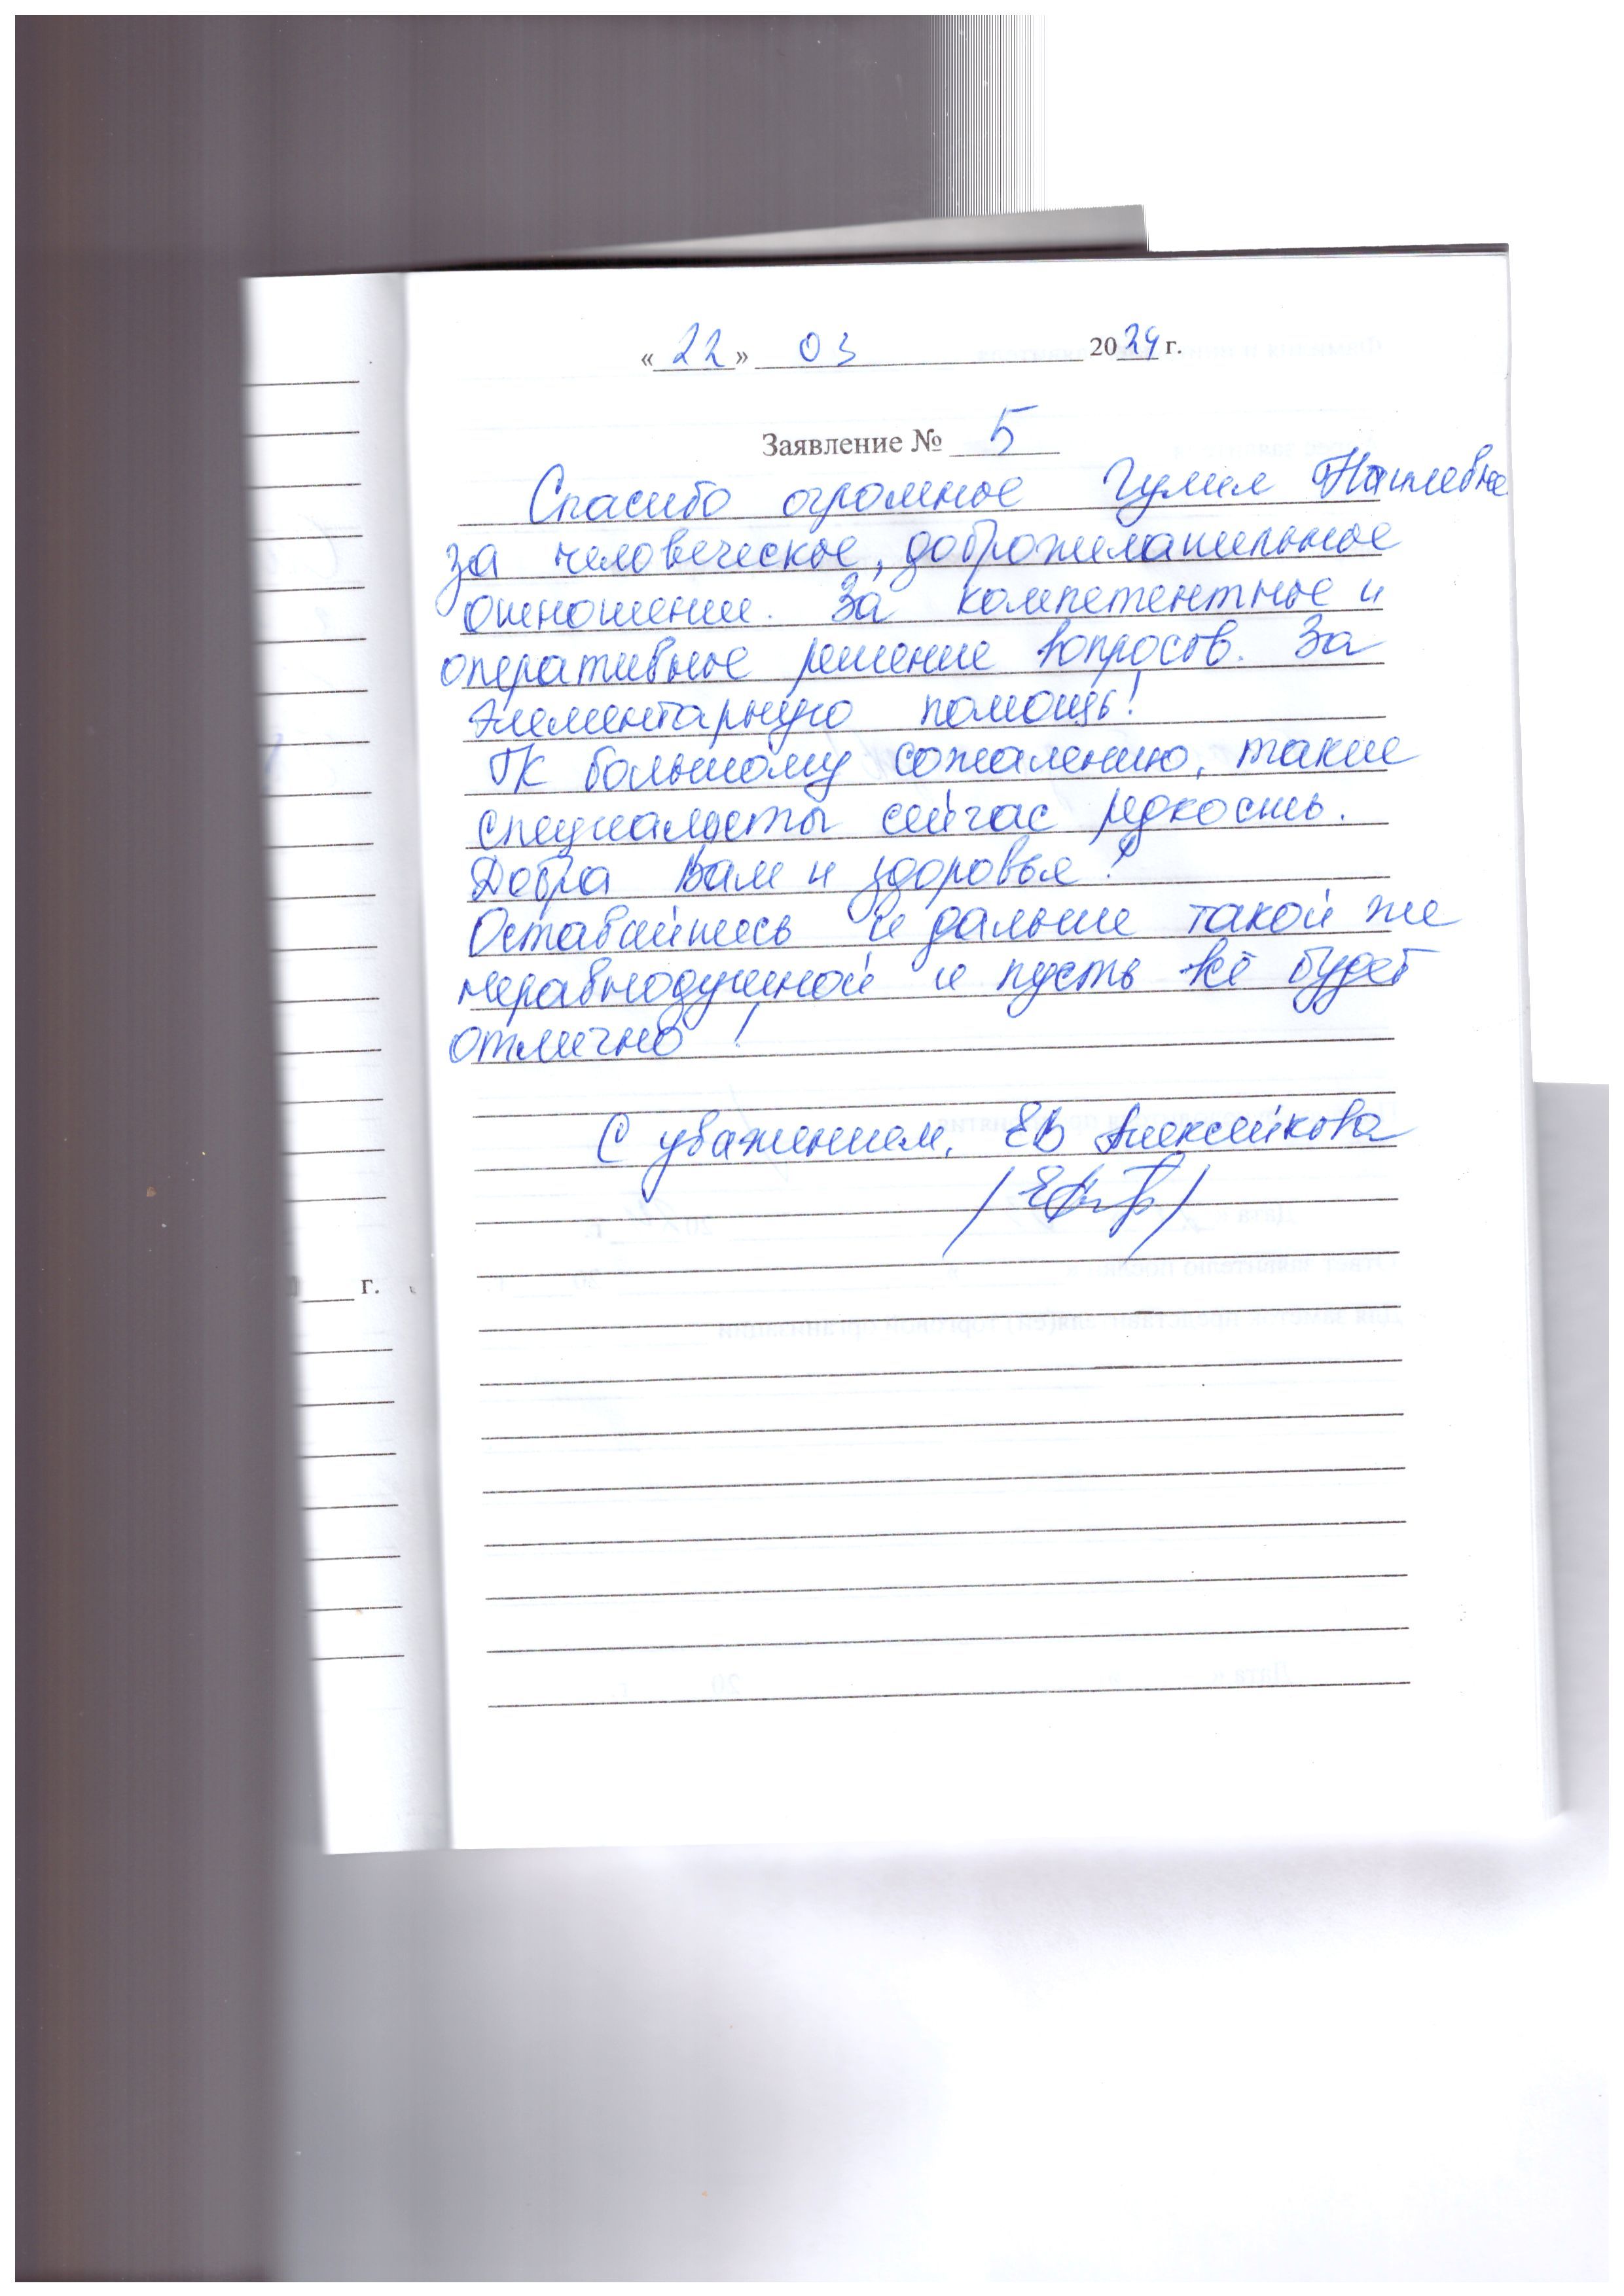 « 22 » 03 2024 г.
Заявление № 5
Спасибо огромное Гулии
за человеческое, доброжелательное
отношение. За компетентное и
оперативное решение вопросов. За
элементарную помощь!
К большому сожалению, такие
специалисты сейчас редкость.
Добра Вам и здоровья!
Оставайтесь и дальше такой же
неравнодушной и пусть всё будет
отлично!
С уважением, ЕВ Алексейкова
г.